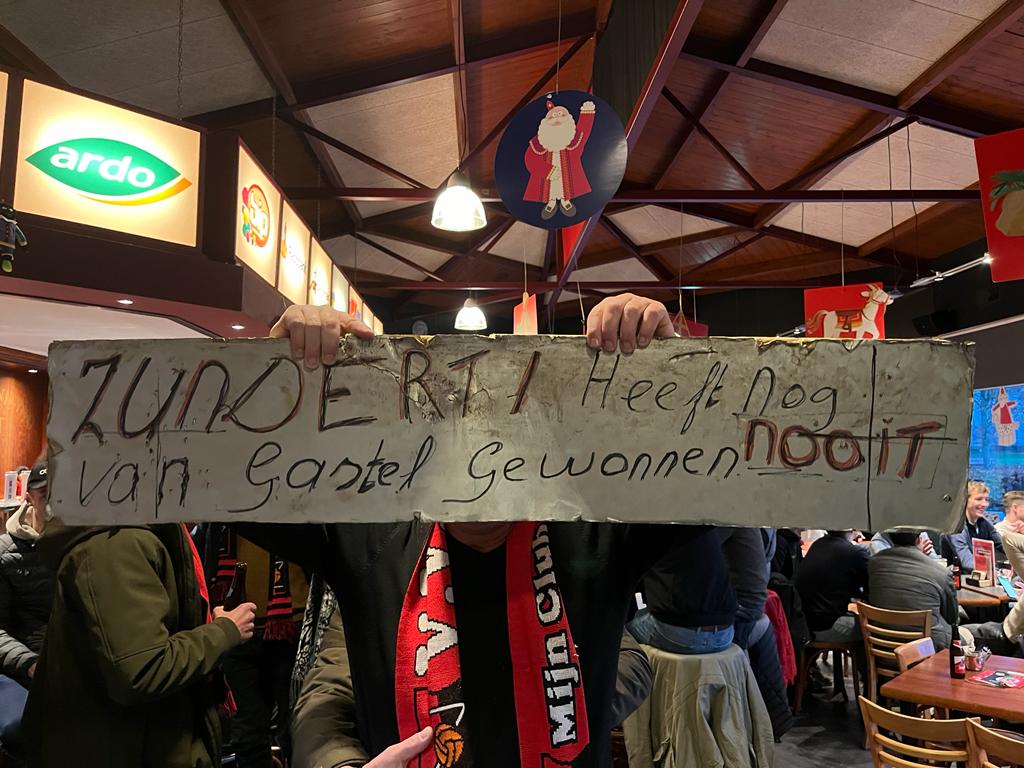 ardo
ZUNDERT! Heeft nog
van Gastel Gewonnen NOOIT
Mijn Club